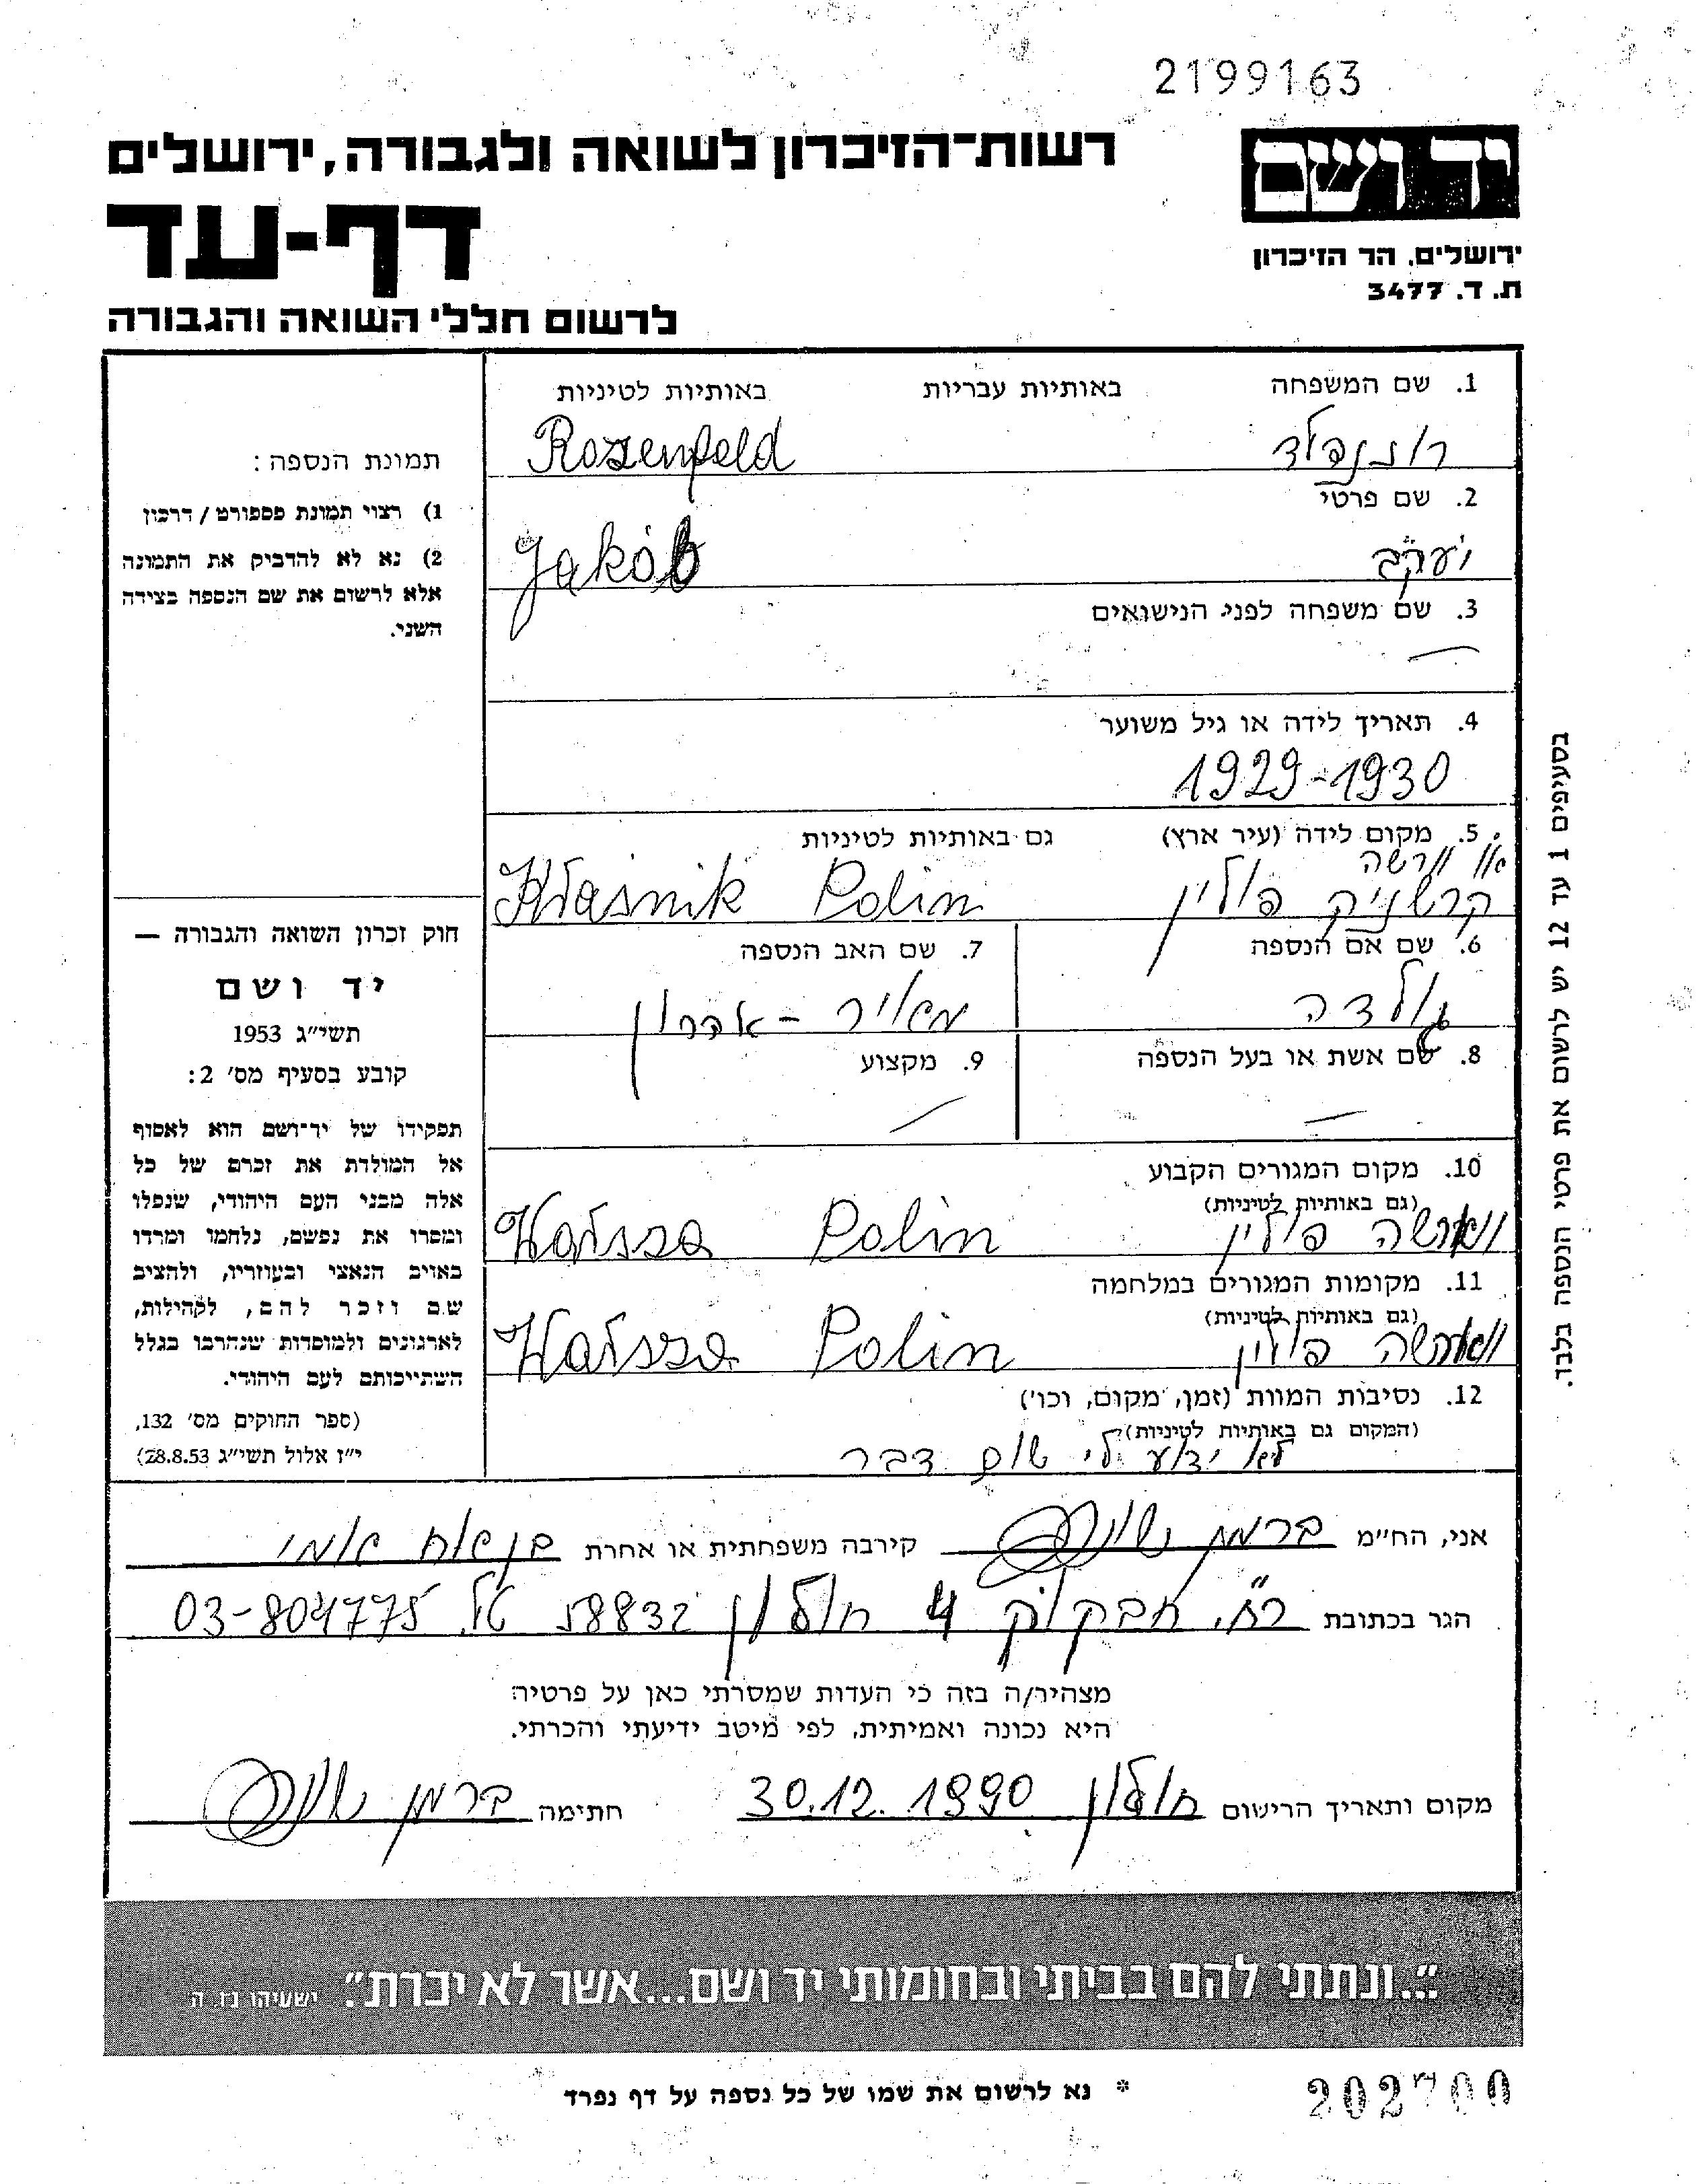 2199163
יד ושם
רשות־הזיכרון לשואה ולגבורה, ירושלים
דף-עד
ירושלים, הר הזיכרון
ת. ד. 3477
לרשום חללי השואה והגבורה
1. שם המשפחה באותיות עבריות באותיות לטיניות
רוזנפלד Rozenfeld
2. שם פרטי
יעקב Jakób
3. שם משפחה לפני הנישואים
—
4. תאריך לידה או גיל משוער
1929-1930
5. מקום לידה (עיר ארץ) גם באותיות לטיניות
או ורשה
קרשניק פולין Kraśnik Polin
6. שם אם הנספה 7. שם האב הנספה
גולדה מאיר - אהרון
8. שם אשת או בעל הנספה 9. מקצוע
— —
10. מקום המגורים הקבוע
(גם באותיות לטיניות)
ווארשה פולין Warsza Polin
11. מקומות המגורים במלחמה
(גם באותיות לטיניות)
ווארשה פולין Warsza Polin
12. נסיבות המוות (זמן, מקום, וכו')
(המקום גם באותיות לטיניות)
לא ידוע לי שום דבר
תמונת הנספה:
1) רצוי תמונת פספורט / דרכון
2) נא לא להדביק את התמונה
אלא לרשום את שם הנספה בצידה
השני.
חוק זכרון השואה והגבורה —
יד ושם
תשי"ג 1953
קובע בסעיף מס' 2:
תפקידו של יד־ושם הוא לאסוף
אל המולדת את זכרם של כל
אלה מבני העם היהודי, שנפלו
ומסרו את נפשם, נלחמו ומרדו
באויב הנאצי ובעוזריו, ולהציב
שם וזכר להם, לקהילות,
לארגונים ולמוסדות שנחרבו בגלל
השתייכותם לעם היהודי.
(ספר החוקים מס' 132,
י"ז אלול תשי"ג 28.8.53)
בסעיפים 1 עד 12 יש לרשום את פרטי הנספה בלבד.
אני, הח"מ ברמן קירבה משפחתית או אחרת בן אח אמי
הגר בכתובת רח' חבקוק 4 חולון 58832 טל. 03-804775
מצהיר/ה בזה כי העדות שמסרתי כאן על פרטיה
היא נכונה ואמיתית, לפי מיטב ידיעתי והכרתי.
מקום ותאריך הרישום חולון 30.12.1990 חתימה ברמן
"...ונתתי להם בביתי ובחומותי יד ושם...אשר לא יכרת". ישעיהו נו, ה
* נא לרשום את שמו של כל נספה על דף נפרד